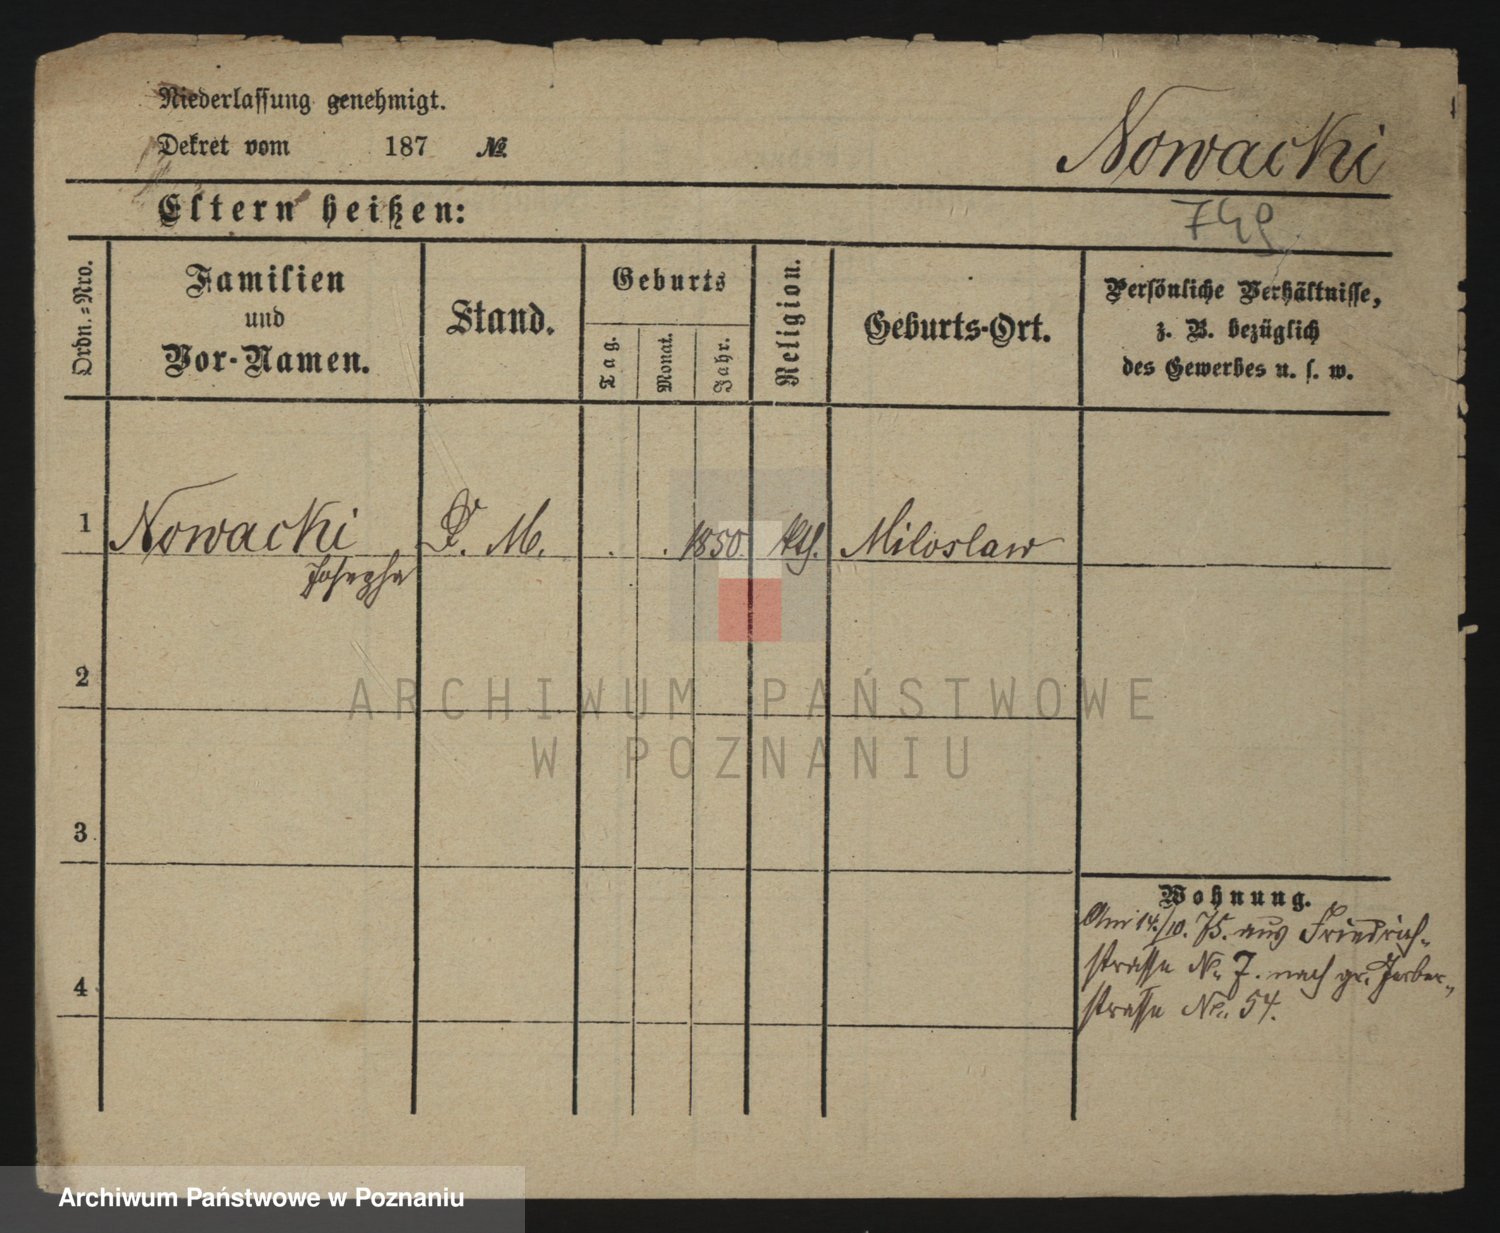 Niederlassung genehmigt.
Dekret vom 187 №
Nowacki
Eltern heißen:
749
Ordn.-Nro.
Familien
und
Vor-Namen.
Stand.
Geburts
Tag.
Monat.
Jahr.
Religion.
Geburts-Ort.
Persönliche Verhältnisse,
z. B. bezüglich
des Gewerbes u. s. w.
1 Nowacki D. M. . . 1850. kth. Miloslaw
Josepha
2
ARCHIWUM PAŃSTWOWE
W POZNANIU
3
Wohnung.
Am 14./10. 75. aus Friedrich-
strasse No 7. nach gr. Gerber-
4
strasse No. 54.
Archiwum Państwowe w Poznaniu